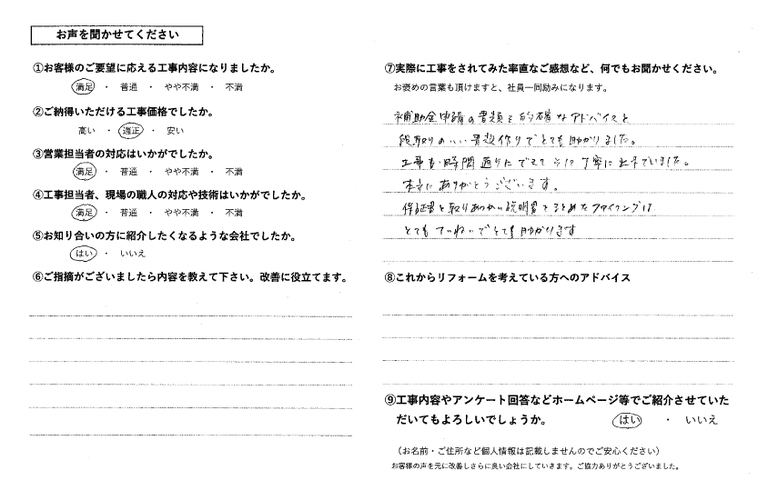 お声を聞かせてください
①お客様のご要望に応える工事内容になりましたか。
満足 ・ 普通 ・ やや不満 ・ 不満
②ご納得いただける工事価格でしたか。
高い ・ 適正 ・ 安い
③営業担当者の対応はいかがでしたか。
満足 ・ 普通 ・ やや不満 ・ 不満
④工事担当者、現場の職人の対応や技術はいかがでしたか。
満足 ・ 普通 ・ やや不満 ・ 不満
⑤お知り合いの方に紹介したくなるような会社でしたか。
はい ・ いいえ
⑥ご指摘がございましたら内容を教えて下さい。改善に役立てます。
⑦実際に工事をされてみた率直なご感想など、何でもお聞かせください。
お褒めの言葉も頂けますと、社員一同励みになります。
補助金申請の書類も的確なアドバイスと
段取りのいい書類作りでとても助かりました。
工事も時間通りにできて 丁寧に
本当にありがとうございます。
保証書と取りあつかい説明書をまとめたファイリングは
とてもていねいでとても助かります
⑧これからリフォームを考えている方へのアドバイス
⑨工事内容やアンケート回答などホームページ等でご紹介させていた
だいてもよろしいでしょうか。 はい ・ いいえ
（お名前・ご住所など個人情報は記載しませんのでご安心ください）
お客様の声を元に改善しさらに良い会社にしていきます。ご協力ありがとうございました。